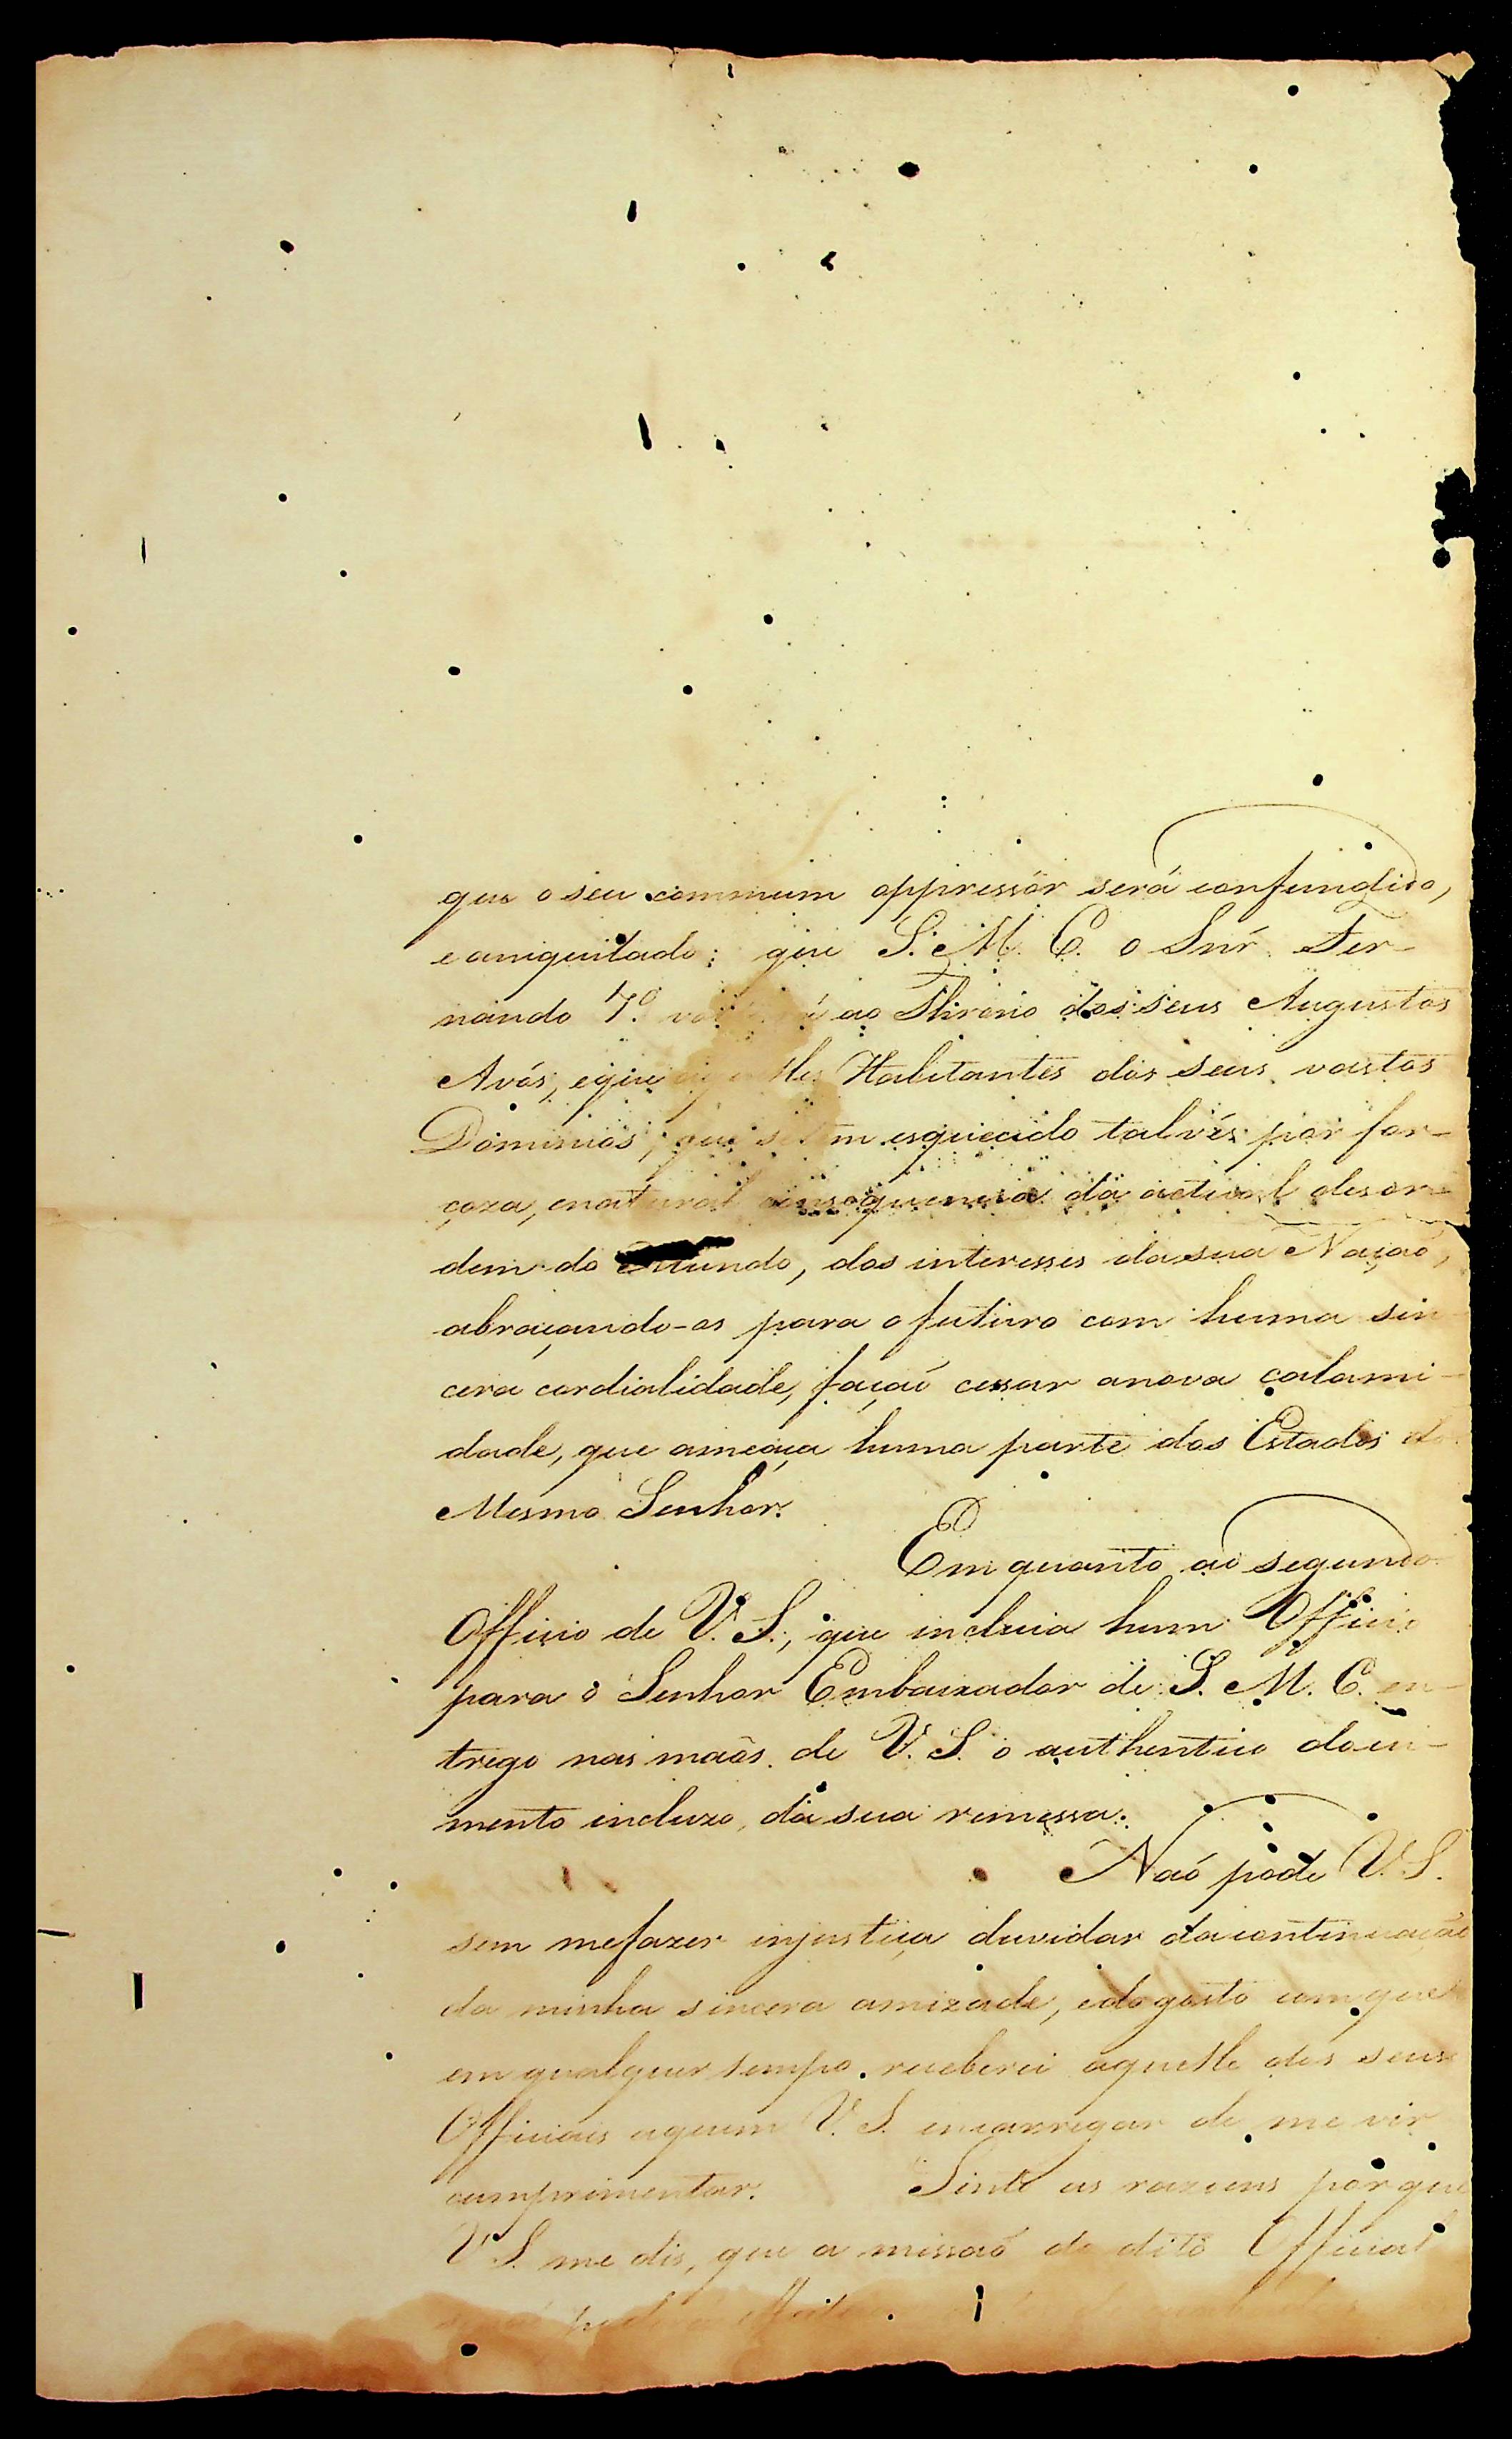 que o seu commum oppressór será confundido,
e aniquilado; que S. M. C. o Snr̃. Fer-
nando 7º. ao Throno dos seus Augustos
Avós, e que Habitantes dos seus vastos
Dominios, que se tem esquecido talvéz por for-
çoza, e natural consequencia da actual desor-
dem do Mundo, dos interesses da sua Naçaõ,
abraçando-os para o futuro com huma sin
cera cordialidade, façaõ cessar a nova calami-
dade, que ameaça huma parte dos Estados do
Mesmo Senhor.
Em quanto ao segundo
Officio de V. S., que incluia hum Officio
para o Senhor Embaixador de S. M. C. en-
trego nas maõs de V. S. o authentico docu-
mento incluzo, da sua remessa.
Naõ pode V. S.
sem me fazer injustiça duvidar da continuaçaõ
da minha sincera amizade, e do gosto com que
em qualquer tempo receberei aquelle dos seus
Officiais a quem V. S. encarregar de me vir
cumprimentar. Sinto as razoens porque
V. S. me diz, que a missaõ do dito Official